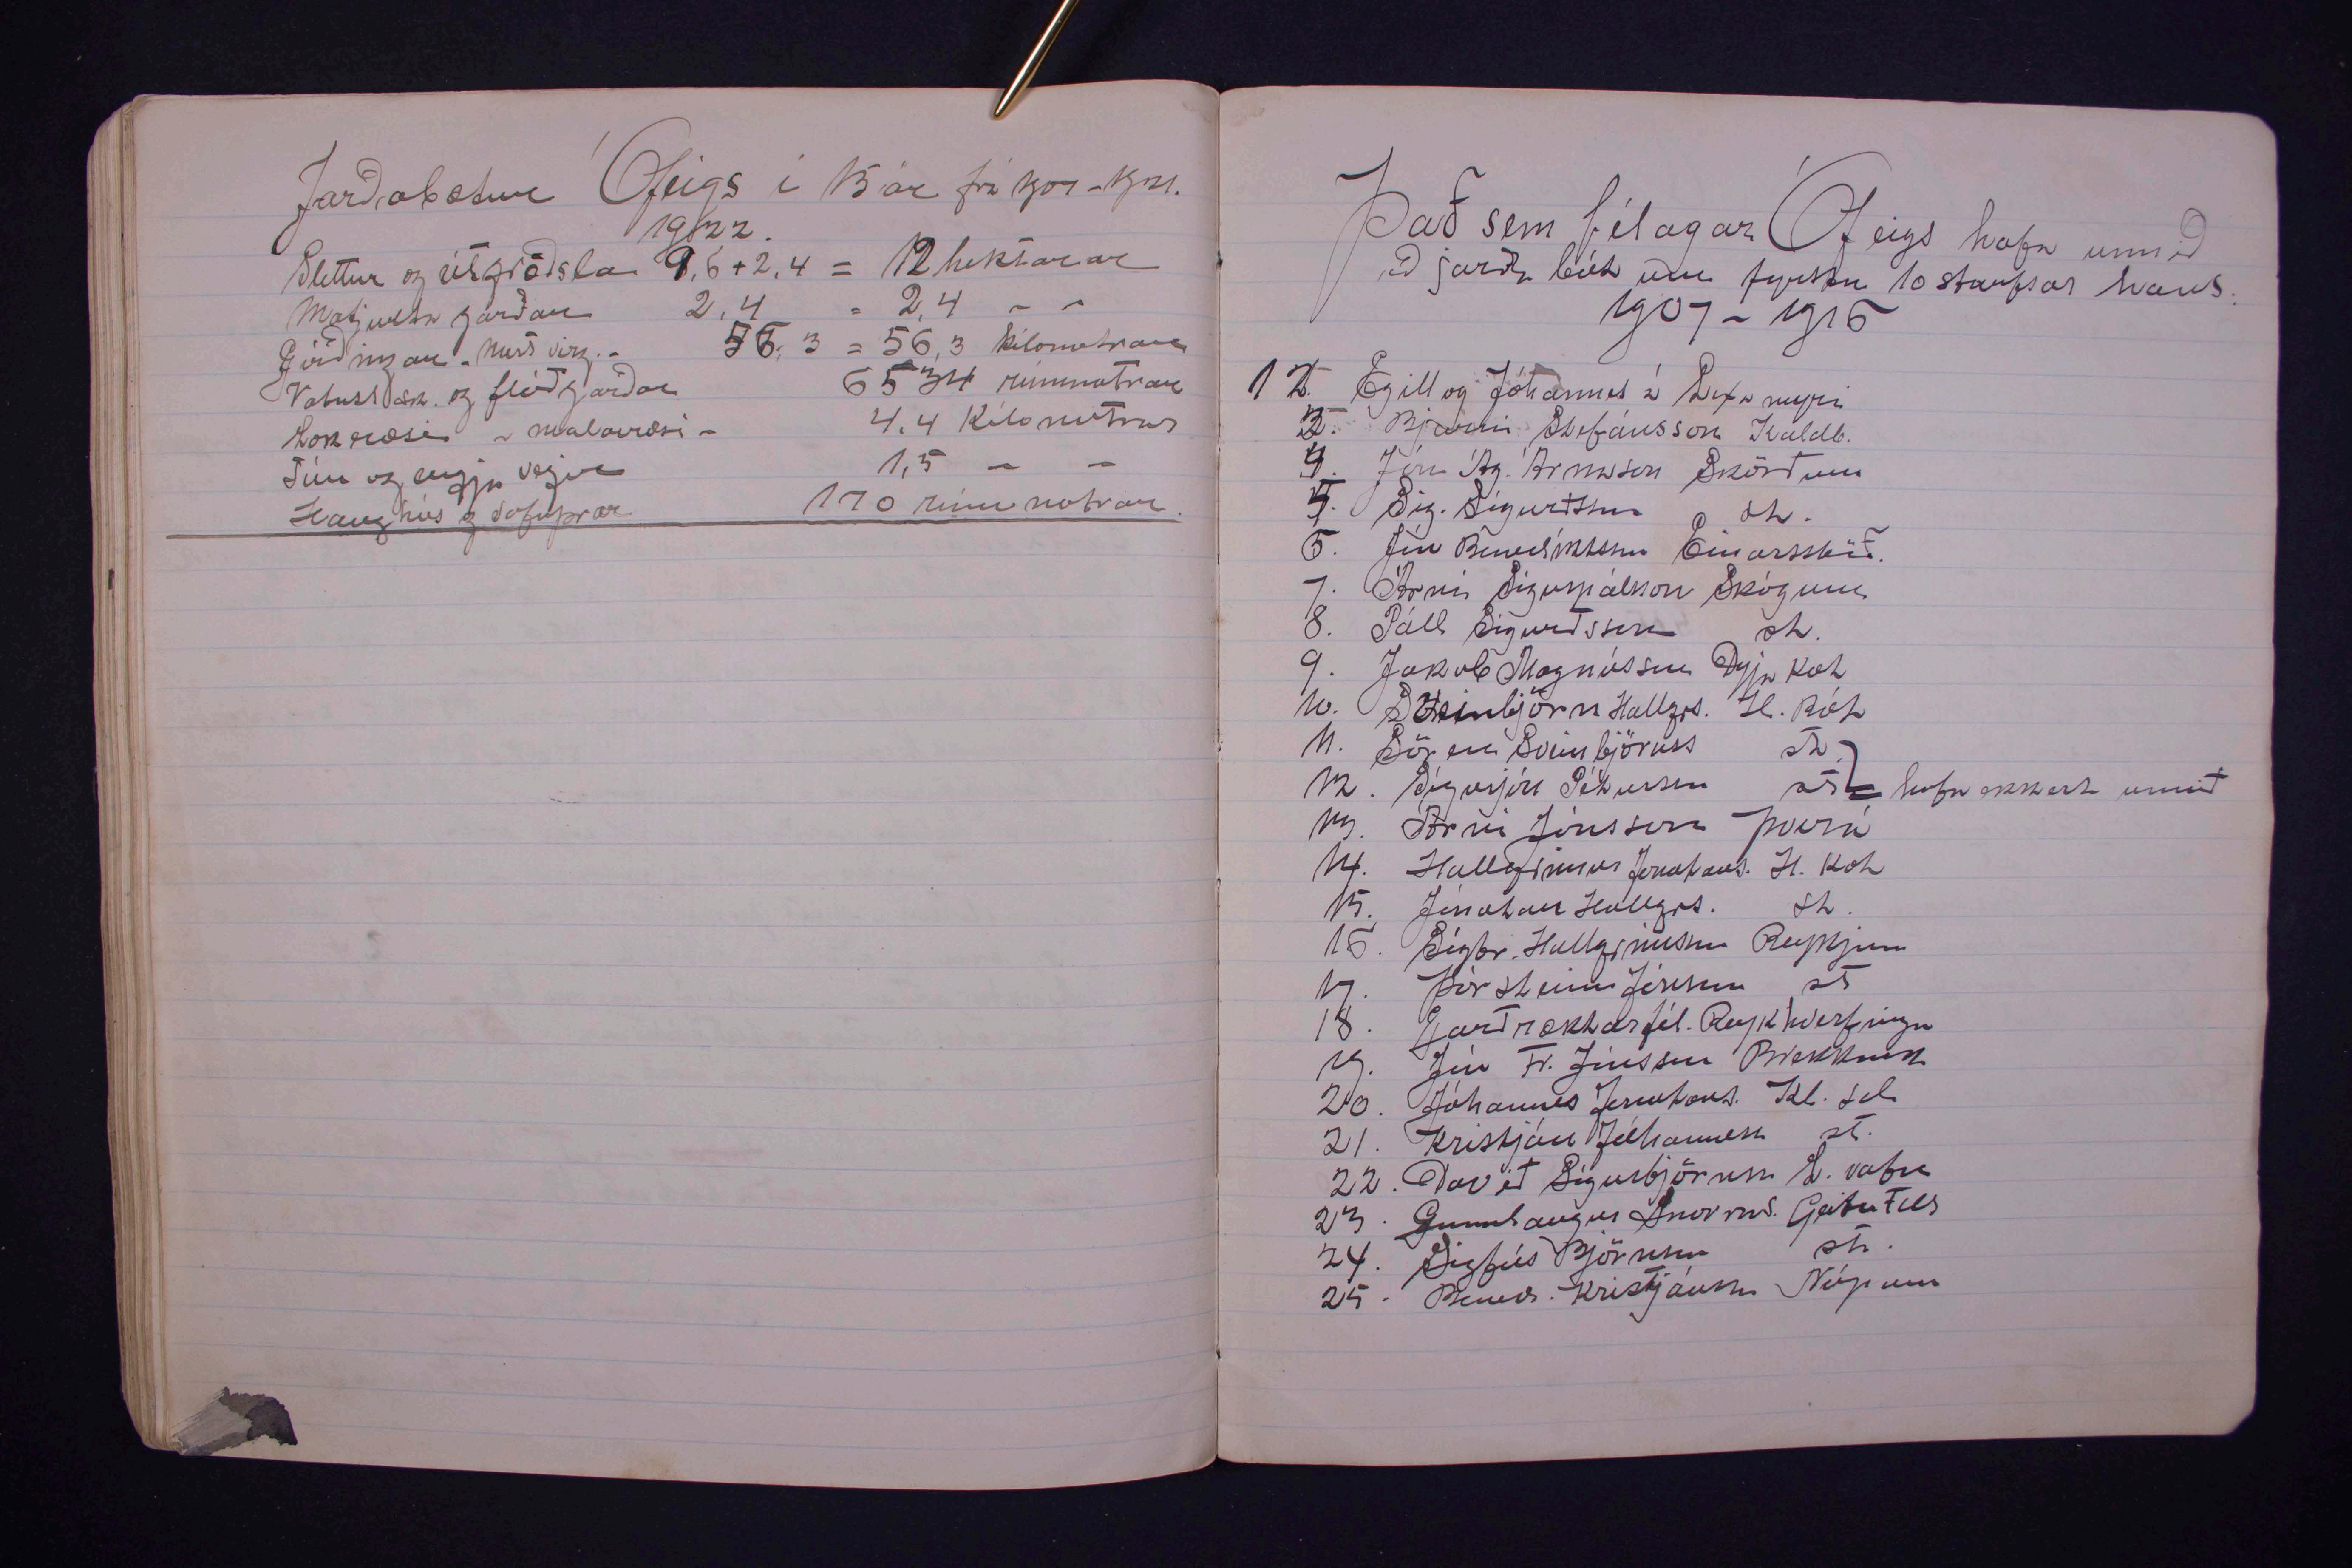 Jarðabætur Ófeigs í 15 ár frá 1907-1921.
1922.
Slettur og útgræðsla 9,6 + 2,4 = 12 hektarar
Matjurta garðar 2,4 = 2,4 - -
Girðingar - 56,3 = 56,3 kílometrar
og flóðgarðar 6534 rúmmetrar
Lokræsi - malarræsi - 4,4 Kílometrar
Tún og engja vegir 1,5 - -
Haughús og safnþrær 170 rúmmetrar.
Það sem félagar Ófeigs hafa unnið
að jarða bót um fyrstu 10 starfsár hans.
1907 - 1916
1 2. Egill og Jóhannes á Laxamýri
3. Bjarni Stefánsson Kaldb.
4. Jón Ág. Árnason Skörðum
5. Sig. Sigurðsson st.
6. Jón Benediktsson Einarsstöð.
7. Árni Sigurpálsson Skógum
8. Páll Sigurðsson st.
9. Jakob Magnússon Dýjakot
10. Sveinbjörn Hallgrs. H. Rét
11. Sören Sveinbjörnss st.
12. Sigurjón Pétursson st = hafa ekkert unnið
13. Árni Jónsson Þverá
14. Hallgrímur Jónatans. H. Kot
15. Jónatan Hallgrs. st.
16. Sigtr. Hallgrímsson Reykjum
17. Þorsteinn Jónsson st
18. Garðræktarfél. Reykhverfinga
19. Jón Fr. Jónsson Brekknak
20. Jóhannes Jónatans. Kl. sel
21. Kristján Jóhanness st.
22. Davíð Sigurbjörnss L. vatn
23. Gunnlaugur Snorras. Geitafell
24. Sigfús Björnsson st.
25. Bened. Kristjánsson Núpum